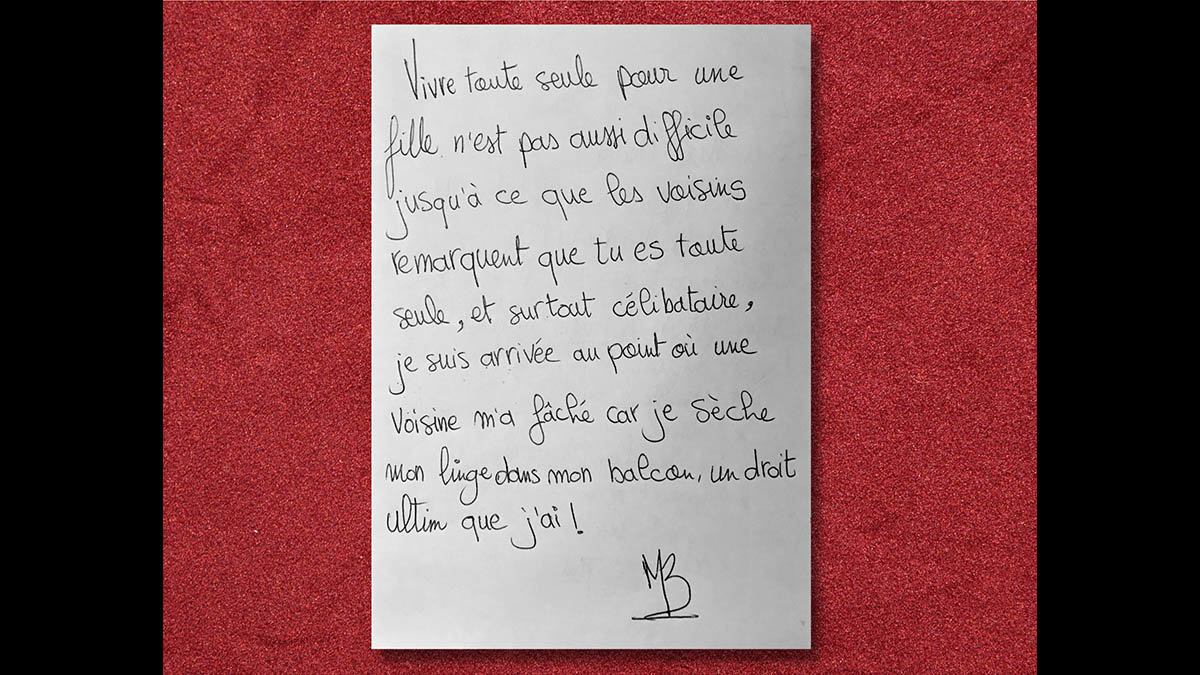 Vivre toute seule pour une
fille n'est pas aussi difficile
jusqu'à ce que les voisins
remarquent que tu es toute
seule, et surtout célibataire,
je suis arrivée au point où une
voisine m'a fâché car je sèche
mon linge dans mon balcon, un droit
ultim que j'ai !
MB